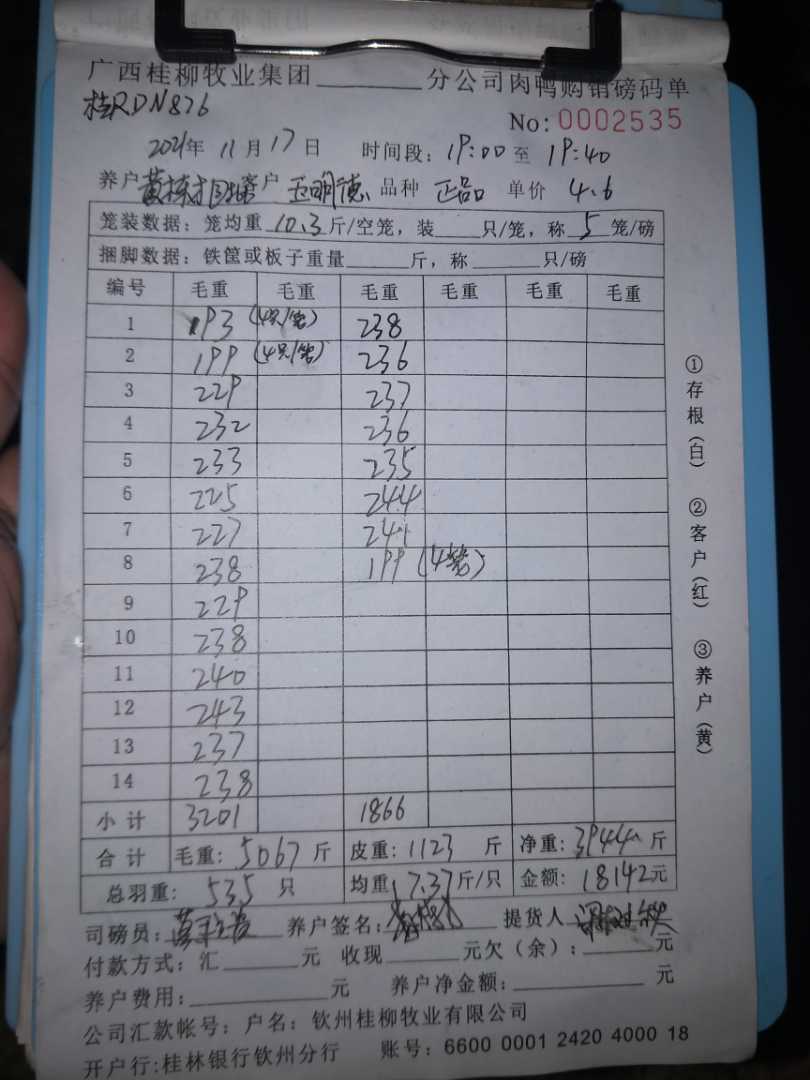 广西桂柳牧业集团______分公司肉鸭购销磅码单
桂RDN876
No: 0002535
2021年 11月17日 时间段: 19:00至 19:40
养户 客户 王明德 品种 正品 单价 4.6
笼装数据: 笼均重 10.3 斤/空笼, 装____只/笼, 称 5 笼/磅
捆脚数据: 铁筐或板子重量____斤, 称____只/磅
编号 毛重 毛重 毛重 毛重 毛重 毛重
1 193 (4只/笼) 238
2 199 (4只/笼) 236
3 229 237
4 232 236
5 233 235
6 225 244
7 227 241
8 238 199 (4笼)
9 229
10 238
11 240
12 243
13 237
14 238
小计 3201 1866
合计 毛重: 5067 斤 皮重: 1123 斤 净重: 3944 斤
总羽重: 535 只 均重 7.37 斤/只 金额: 18142元
司磅员: 养户签名: 提货人
付款方式: 汇____元 收现____元欠(余): ____元
养户费用: ____元 养户净金额: ____元
公司汇款帐号: 户名: 钦州桂柳牧业有限公司
开户行:桂林银行钦州分行 账号: 6600 0001 2420 4000 18
①存根(白) ②客户(红) ③养户(黄)